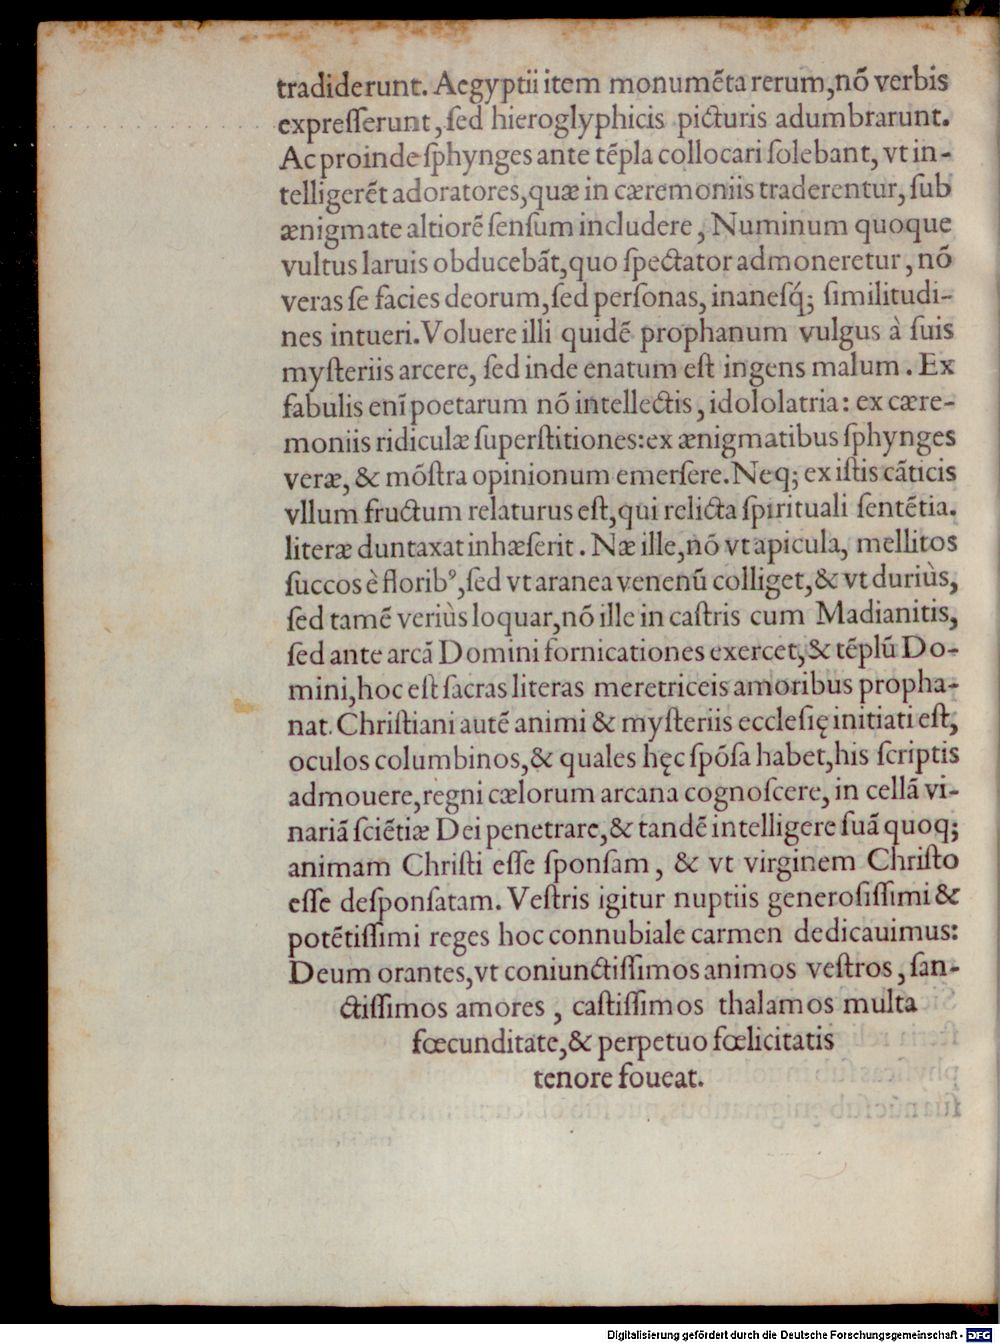 tradiderunt. Aegyptii item monumẽta rerum,nõ verbis
expreſſerunt, ſed hieroglyphicis picturis adumbrarunt.
Ac proinde ſphynges ante tẽpla collocari ſolebant, vt in-
telligerẽt adoratores,quæ in cæremoniis traderentur, ſub
ænigmate altiorẽ ſenſum includere, Numinum quoque
vultus laruis obducebãt,quo ſpectator admoneretur, nõ
veras ſe facies deorum,ſed perſonas, inaneſq́; ſimilitudi-
nes intueri.Voluere illi quidẽ prophanum vulgus à ſuis
myſteriis arcere, ſed inde enatum eſt ingens malum. Ex
fabulis enĩ poetarum nõ intellectis, idololatria: ex cære-
moniis ridiculæ ſuperſtitiones:ex ænigmatibus ſphynges
veræ, & mõſtra opinionum emerſere. Neq; ex iſtis cãticis
vllum fructum relaturus eſt,qui relicta ſpirituali ſentẽtia.
literæ duntaxat inhæſerit. Næ ille,nõ vt apicula, mellitos
ſuccos è florib⁹,ſed vt aranea venenũ colliget,& vt duriùs,
ſed tamẽ veriùs loquar,nõ ille in caſtris cum Madianitis,
ſed ante arcã Domini fornicationes exercet,& tẽplũ Do-
mini,hoc eſt ſacras literas meretriceis amoribus propha-
nat. Chriſtiani autẽ animi & myſteriis eccleſię initiati eſt,
oculos columbinos,& quales hęc ſpõſa habet,his ſcriptis
admouere,regni cælorum arcana cognoſcere, in cellã vi-
nariã ſciẽtiæ Dei penetrare,& tandẽ intelligere ſuã quoq;
animam Chriſti eſſe ſponſam, & vt virginem Chriſto
eſſe deſponſatam. Veſtris igitur nuptiis generoſiſſimi &
potẽtiſſimi reges hoc connubiale carmen dedicauimus:
Deum orantes,vt coniunctiſſimos animos veſtros, ſan-
ctiſſimos amores, caſtiſſimos thalamos multa
fœcunditate,& perpetuo fœlicitatis
tenore foueat.
Digitalisierung gefördert durch die Deutsche Forschungsgemeinschaft - DFG